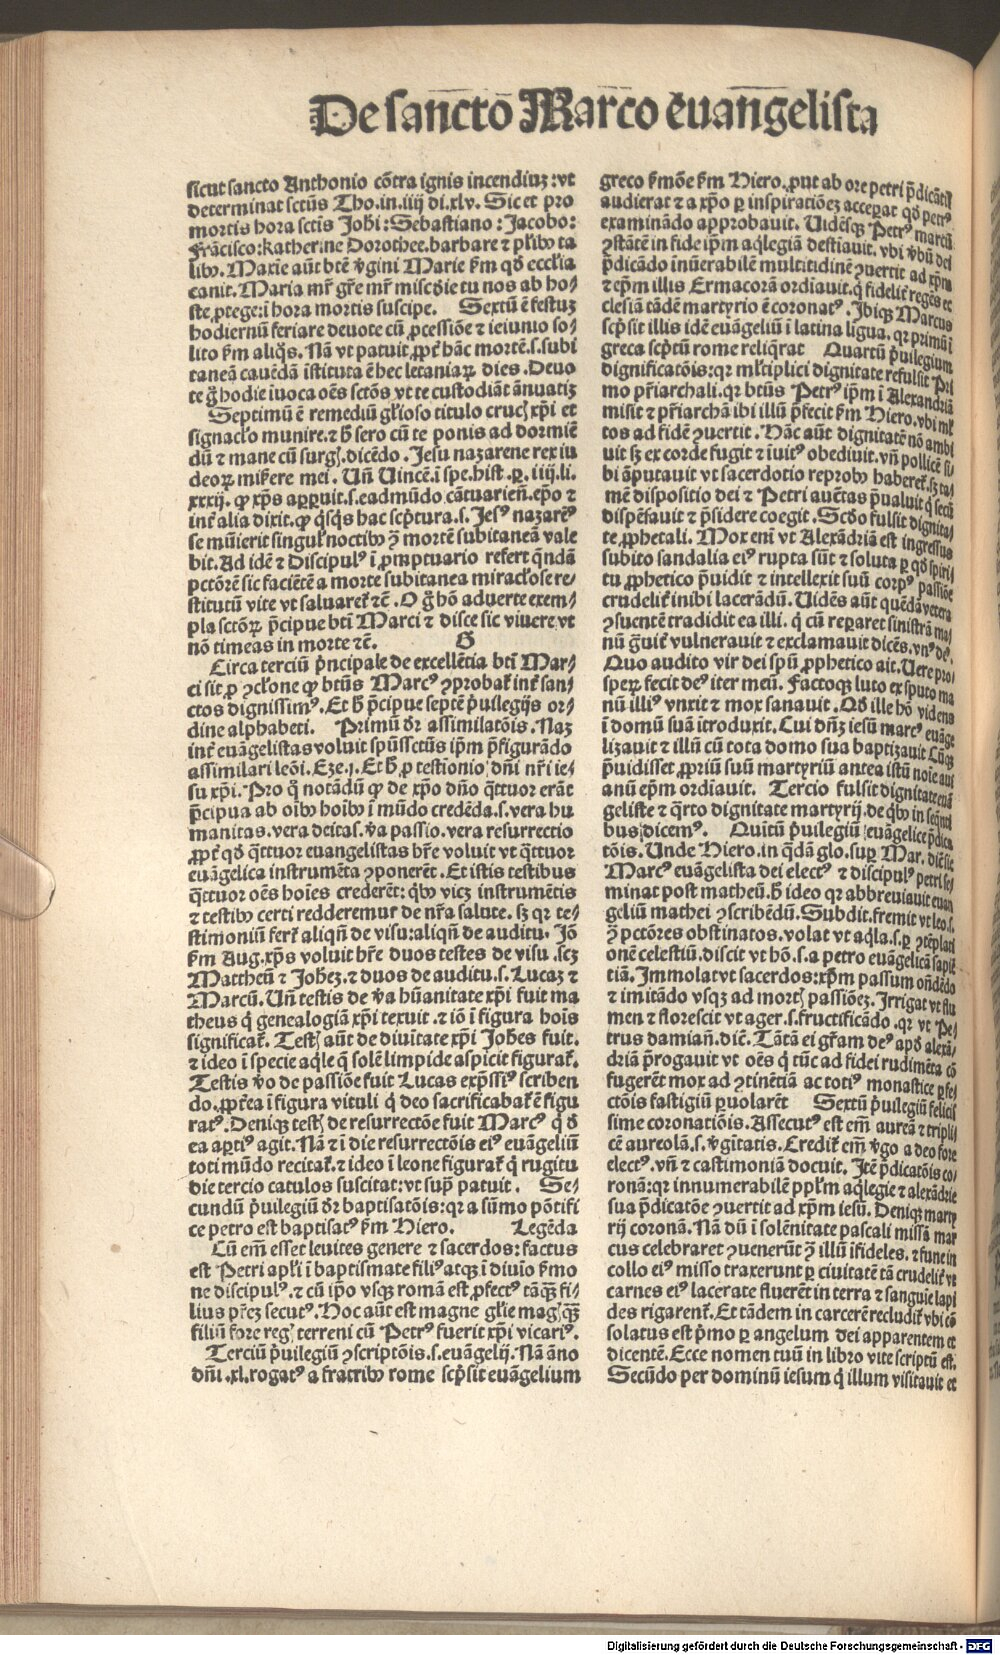 De sanctō Marco ēuangelista
sicut sancto Anthonio cōtra ignis incendiuꝫ: vt
determinat sctūs Tho. in. iiij di. xlv. Sic et pro
mortis hora sctīs Johī: Sebastiano: Jacobo:
Frācisco: katherine Dorothee. barbare ⁊ pl̄ibꝫ ta
libꝫ. Maxīe aūt btē v̄gini Marie ẜm qd̓ eccl̄ia
canit. Maria mr̄ gr̄e mr̄ miscd̓ie tu nos ab ho⸗
ste ꝓtege: ī hora mortis suscipe. Sextū ē festuꝫ
hodiernū feriare deuote cū ꝓcessiōe ⁊ ieiunio so⸗
lito ẜm aliq̄s. Nā vt patuit. ꝓpt̓ hāc mortē. s. subi
taneā cauēdā īstituta ē hec letaniaꝝ dies. Deuo
te g̊ hodie iuoca oēs sctōs vt te custodiāt ānuatiꝫ
Septimū ē remediū gl̄ioso titulo cruc̄ xp̄i et
signacl̄o munire. ⁊ h̓ sero cū te ponis ad dormiē
dū ⁊ mane cū surḡ. dicēdo. Jesu nazarene rex iu
deoꝝ miẜere mei. Vn̄ Vincē. ī spe. hist. ꝑ. iiij. li.
xxxij. ꝙ xp̄s apꝑuit. s. eadmūdo cātuarieñ. ep̄o ⁊
int̓ alia dixit. ꝙ q̓sq̓s hac scpͥtura. s. Jesꝰ nazarēꝰ
se mūierit singul̓ noctibꝫ ꝯ̄ mortē subitaneā vale
bit. Ad idē ⁊ Discipulꝰ ī ꝓmptuario refert q̄ndā
pctōrē sic faciētē a morte subitanea miracl̄ose re⸗
stitutū vite vt saluareẗ ⁊c̄. O g̊ hō aduerte exem⸗
pla sctōꝝ p̄cipue bt̄i Marci ⁊ disce sic viuere vt
nō timeas in morte ⁊c̄. G
Circa terciū pͥncipale de excellētia bt̄i Mar⸗
ci sit ꝓ ꝯcl̄one ꝙ btūs Marcꝰ ꝯprobat̓ int̓ san⸗
ctos dignissimꝰ. Et h̓ p̄cipue septē pͥuilegijs or⸗
dine alphabeti. Primū dr̄ assimilatōis. Naꝫ
int̓ euāgelistas voluit spūssctūs ip̄m p̄figurādo
assimilari leōi. Eze. j. Et h̓ ꝓ testionio dn̄i nr̄i ie⸗
su xp̄i. Pro qͦ notādū ꝙ de xp̄o dn̄o q̄ttuor erāt
p̄cipua ab oībꝫ hoībꝫ ī mūdo credēda. s. vera hu
manitas. vera deitas. v̓a passio. vera resurrectio
ꝓpt̓ qd̓ q̄ttuor euangelistas hr̄e voluit vt q̄ttuor
euāgelica instrumēta ꝯponerēt. Et istis testibus
q̄ttuor oēs hoīes crederēt: q̓bꝫ vicꝫ instrumētis
⁊ testibꝫ certi redderemur de nr̄a salute. sꝫ qꝛ te⸗
stimoniū fert̓ aliqn̄ de visu: aliqn̄ de auditu. Jō
ẜm Aug. xp̄s voluit hr̄e duos testes de visu. scꝫ
Mattheū ⁊ Johēꝫ. ⁊ duos de auditu. s. Lucaꝫ ⁊
Marcū. Vn̄ testis de v̓a hūanitate xp̄i fuit ma
theus qͥ genealogiā xp̄i texuit. ⁊ iō ī figura hoīs
significat̓. Test̄ aūt de diuītate xp̄i Johēs fuit.
⁊ ideo ī specie aq̄le q̄ solē limpide aspicit figurat̓.
Testis v̓o de passiōe fuit Lucas exp̄ssiꝰ scriben
do. ꝓpt̓ea ī figura vituli qͥ deo sacrificabat̓ ē figu
ratꝰ. Deniqꝫ test̄ de resurrectōe fuit Marcꝰ qͥ d̓
ea aptiꝰ agit. Nā ⁊ ī die resurrectōis eiꝰ euāgeliū
toti mūdo recitat̓. ⁊ ideo ī leone figurat̓ qͥ rugitu
die tercio catulos suscitat: vt supͣ patuit. Se⸗
cundū pͥuilegiū dr̄ baptisatōis: qꝛ a sūmo pōtifi
ce petro est baptisatꝰ ẜm Hiero. Legēda
Cū em̄ esset leuites genere ⁊ sacerdos: factus
est Petri apl̄i ī baptismate filiꝰ atqꝫ ī diuīo ẜmo
ne discipulꝰ. ⁊ cū ip̄o vsqꝫ romā est ꝓfectꝰ tāqꝫ fi⸗
lius pr̄eꝫ secutꝰ. Hoc aūt est magne gl̄ie mag̊ qꝫ
filiū fore reḡ terreni cū Petrꝰ fuerit xp̄i vicariꝰ.
Terciū pͥuilegiū ꝯscriptōis. s. euāgelij. Nā āno
dn̄i. xl. rogatꝰ a fratribꝫ rome scpͥsit euāgelium
greco ẜmōe ẜm Hiero. ꝓut ab ore petri p̄dicātis
audierat ⁊ a xp̄o ꝑ inspirationeꝫ acceꝑat qd̓ petrꝰ
examinādo approbauit. Uidēsqꝫ Petrꝰ marcū
ꝯstātē in fide ip̄m aq̄legiā destiauit. vbi v̓bū dei
p̄dicādo īnūerabilē multitudinē ꝯuertit ad xp̄m
⁊ ep̄m illis Ermacorā ordiauit. qͥ fidelit̓ regēs ec
clesiā tādē martyrio ē coronatꝰ. Jbiqꝫ Marcus
scpͥsit illis idē euāgeliū ī latina ligua. qꝛ primū ī
greca scpͥtū rome reliq̓rat Quartū pͥuilegium
dignificatōis: qꝛ ml̓tiplici dignitate refulsit. Pri
mo pr̄iarchali. qꝛ btūs Petrꝰ ip̄m ī Alexandriā
misit ⁊ pr̄iarchā ibi illū p̄fecit ẜm Hiero. vbi ml̓
tos ad fidē ꝯuertit. Hāc aūt dignitatē nō ambi
uit sꝫ ex corde fugit ⁊ īuitꝰ obediuit. vn̄ pollicē si⸗
bi āputauit vt sacerdotio reprobꝫ haberet̓. sꝫ ta⸗
mē dispositio dei ⁊ Petri auctas p̄ualuit qͥ secū
dispēsauit ⁊ p̄sidere coegit. Scd̓o fulsit dignita⸗
te ꝓphetali. Mox eni vt Alexādriā est ingressus
subito sandalia eiꝰ rupta sūt ⁊ soluta ꝑ qd̓ spiri⸗
tu ꝓphetico p̄uidit ⁊ intellexit suū corpꝰ passiōe
crudelit̓ inibi lacerādū. Uidēs aūt quēdā vetera
ꝯsuentē tradidit ea illi. qͥ cū reꝑaret sinistrā ma⸗
nū g̊uit̓ vulnerauit ⁊ exclamauit dicēs. vnꝰ de9.
Quo audito vir dei spū ꝓphetico ait. Uere pro⸗
speꝝ fecit deꝰ iter meū. Factoqꝫ luto ex sputo ma
nū illiꝰ vnxit ⁊ mox sanauit. Qd̓ ille hō vidēns
ī domū suā ītroduxit. Cui dn̄ꝫ iesū marcꝰ euāge
lizauit ⁊ illū cū tota domo sua baptizauit Cūqꝫ
p̄uidisset ꝓpriū suū martyriū antea istū noīe ani
anū ep̄m ordiauit. Tercio fulsit dignitate euā
geliste ⁊ q̓rto dignitate martyrij. de q̓bꝫ in seq̄nti
bus dicemꝰ. Quītū pͥuilegiū euāgelice p̄dica
tōis. Unde Hiero. in q̄dā glo. suꝑ Mar. dic̄ sic
Marcꝰ euāgelista dei electꝰ ⁊ discipulꝰ petri se⸗
minat post matheū. h̓ ideo qꝛ abbreuiauit euan
geliū mathei ꝯscribēdū. Subdit. fremit vt leo. s.
ꝯ̄ pctōres obstinatos. volat vt aq̄la. s. ꝑ ꝯtēplati
onē celestiū. discit vt hō. s. a petro euāgelicā sapiē
tiā. Jmmolat vt sacerdos: xp̄m passum ondēdo
⁊ imitādo vsqꝫ ad mort̄ passiōeꝫ. Jrrigat vt flu
men ⁊ florescit vt ager. s. fructificādo. qꝛ vt Pe⸗
trus damiañ. dic̄. Tātā ei gr̄am deꝰ apd̓ alexā⸗
driā p̄rogauit vt oēs qͥ tūc ad fidei rudimēta cō
fugerēt mox ad ꝯtinētiā ac totiꝰ monastice ꝑfe⸗
ctōis fastigiū ꝑuolarēt Sextū pͥuilegiū felicis
sime coronatiōis. Assecutꝰ est em̄ aureā ⁊ tripli⸗
cē aureolā. s. v̓gītatis. Credit̓ em̄ v̓go a deo fore
electꝰ. vn̄ ⁊ castimoniā docuit. Jtē p̄dicatōis co⸗
ronā: qꝛ innumerabilē ppl̄m aq̄legie ⁊ alexādrie
sua p̄dicatōe ꝯuertit ad xp̄m iesū. Deniqꝫ marty
rij coronā. Nā dū ī solēnitate pascali missā mar
cus celebraret ꝯuenerūt ꝯ̄ illū īfideles. ⁊ fune in
collo eiꝰ misso traxerunt ꝑ ciuitatē tā crudelit̓ vt
carnes eiꝰ lacerate fluerēt in terra ⁊ sanguīe lapi
des rigarent̓. Et tādem in carcerē recludit̓ vbi cō
solatus est pͥmo ꝑ angelum dei apparentem et
dicentē. Ecce nomen tuū in libro vite scriptū est.
Secūdo per dominū iesum qͥ illum visitauit et
Digitalisierung gefördert durch die Deutsche Forschungsgemeinschaft - DFG